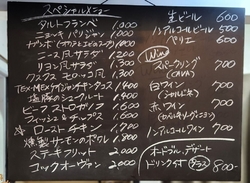 スペシャルメニュー
タルトフランベ 1,000
ニョッキ パリジャン 1,000
ニース風サラダ 1,200
リヨン風サラダ 1,300
クスクス モロッコ風 1,300
TEX-MEXケイジャンチキンタコス 1,400
塩豚のシュークルート
ビーフストロガノフ 1,600
フィッシュ&チップス 1,600
ローストチキン 1,700
燻製サーモンのポワレ 1,800
ステークフリット 2,000
コックオーヴァン 2,000
生ビール 600
ノンアルコールビール 500
ペリエ 600
Wine
スパークリング 700
(CAVA)
白ワイン 700
赤ワイン 700
ノンアルコールワイン 700
オードブル、デザート
ドリンクSet プラス 800-